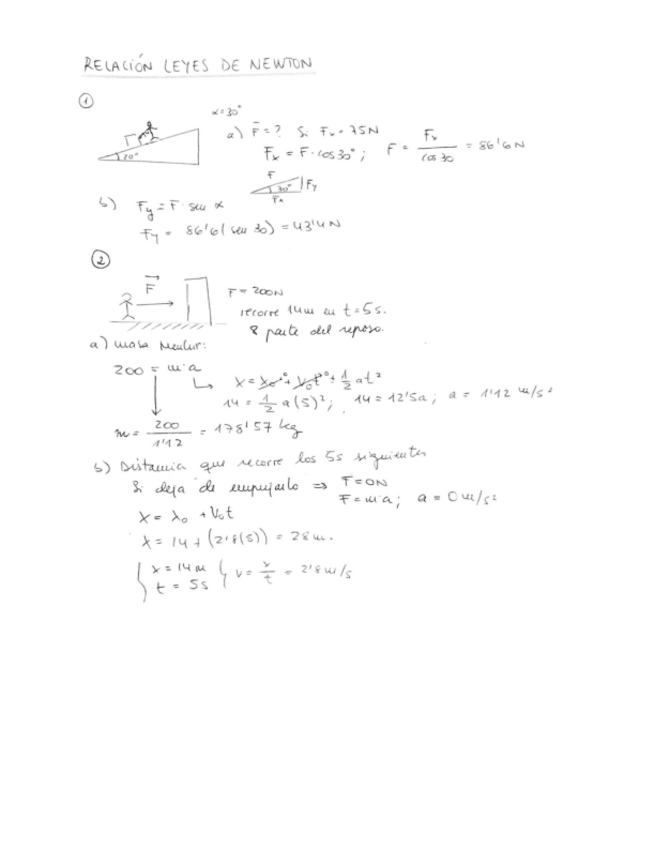 RELACIÓN LEYES DE NEWTON
①
α=30°
a) F̄=? Si Fx=75N
20°
Fx = F·cos30°; F = Fx / cos 30 = 86'6N
F
30° Fy
Fx
b) Fy = F·sen α
Fy = 86'6(sen 30) = 43'4N
②
F
F = 200N
recorre 14m en t=5s.
8 parte del reposo.
a) masa
200 = m·a
x = x₀⁰ + v₀t⁰ + 1/2 at²
14 = 1/2 a(5)²; 14 = 12'5a; a = 1'12 m/s²
m = 200 / 1'12 = 178'57 kg
b) Distancia que recorre los 5s siguientes
Si deja de empujarlo ⇒ F=0N
F=m·a; a = 0m/s²
x = x₀ + v₀t
x = 14 + (2'8(5)) = 28m.
x = 14m
t = 5s
v = x/t = 2'8m/s